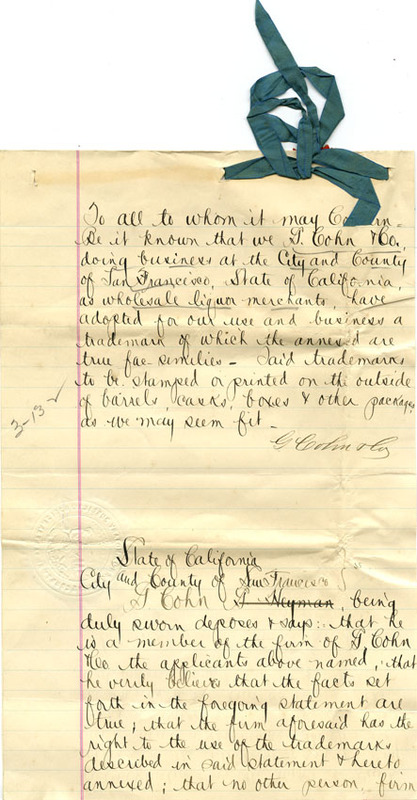 To all to whom it may Concern -
Be it known that we G. Cohn & Co.
doing business at the City and County
of San Francisco, State of California,
as wholesale liquor merchants, have
adopted for our use and business a
trademark of which the annexed are
true fac-similies - Said trademarks
to be stamped or printed on the outside
of barrels, casks, boxes & other packages
as we may seem fit -
3-13 ✓
G Cohn & Co
State of California
City and County of San Francisco }
G Cohn G. Heyman, being
duly sworn deposes & says: that he
is a member of the firm of G Cohn
& Co the applicants above named, that
he verily believes that the facts set
forth in the foregoing statement are
true; that the firm aforesaid has the
right to the use of the trademarks
described in said statement & hereto
annexed; that no other person, firm